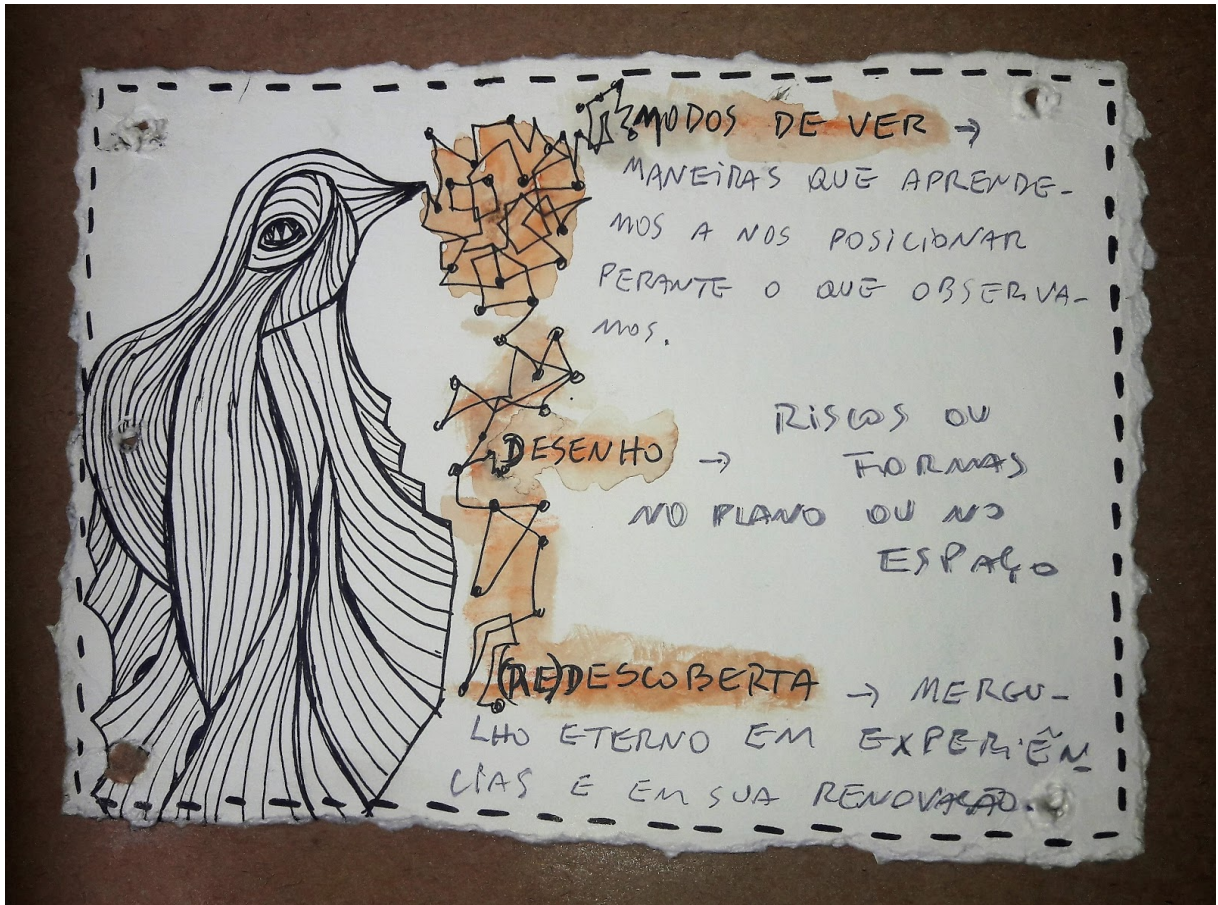 MODOS DE VER →
MANEIRAS QUE APRENDE-
MOS A NOS POSICIONAR
PERANTE O QUE OBSERVA-
MOS.
DESENHO → RISCOS OU
FORMAS
NO PLANO OU NO
ESPAÇO
(RE)DESCOBERTA → MERGU-
LHO ETERNO EM EXPERIÊN
CIAS E EM SUA RENOVAÇÃO.